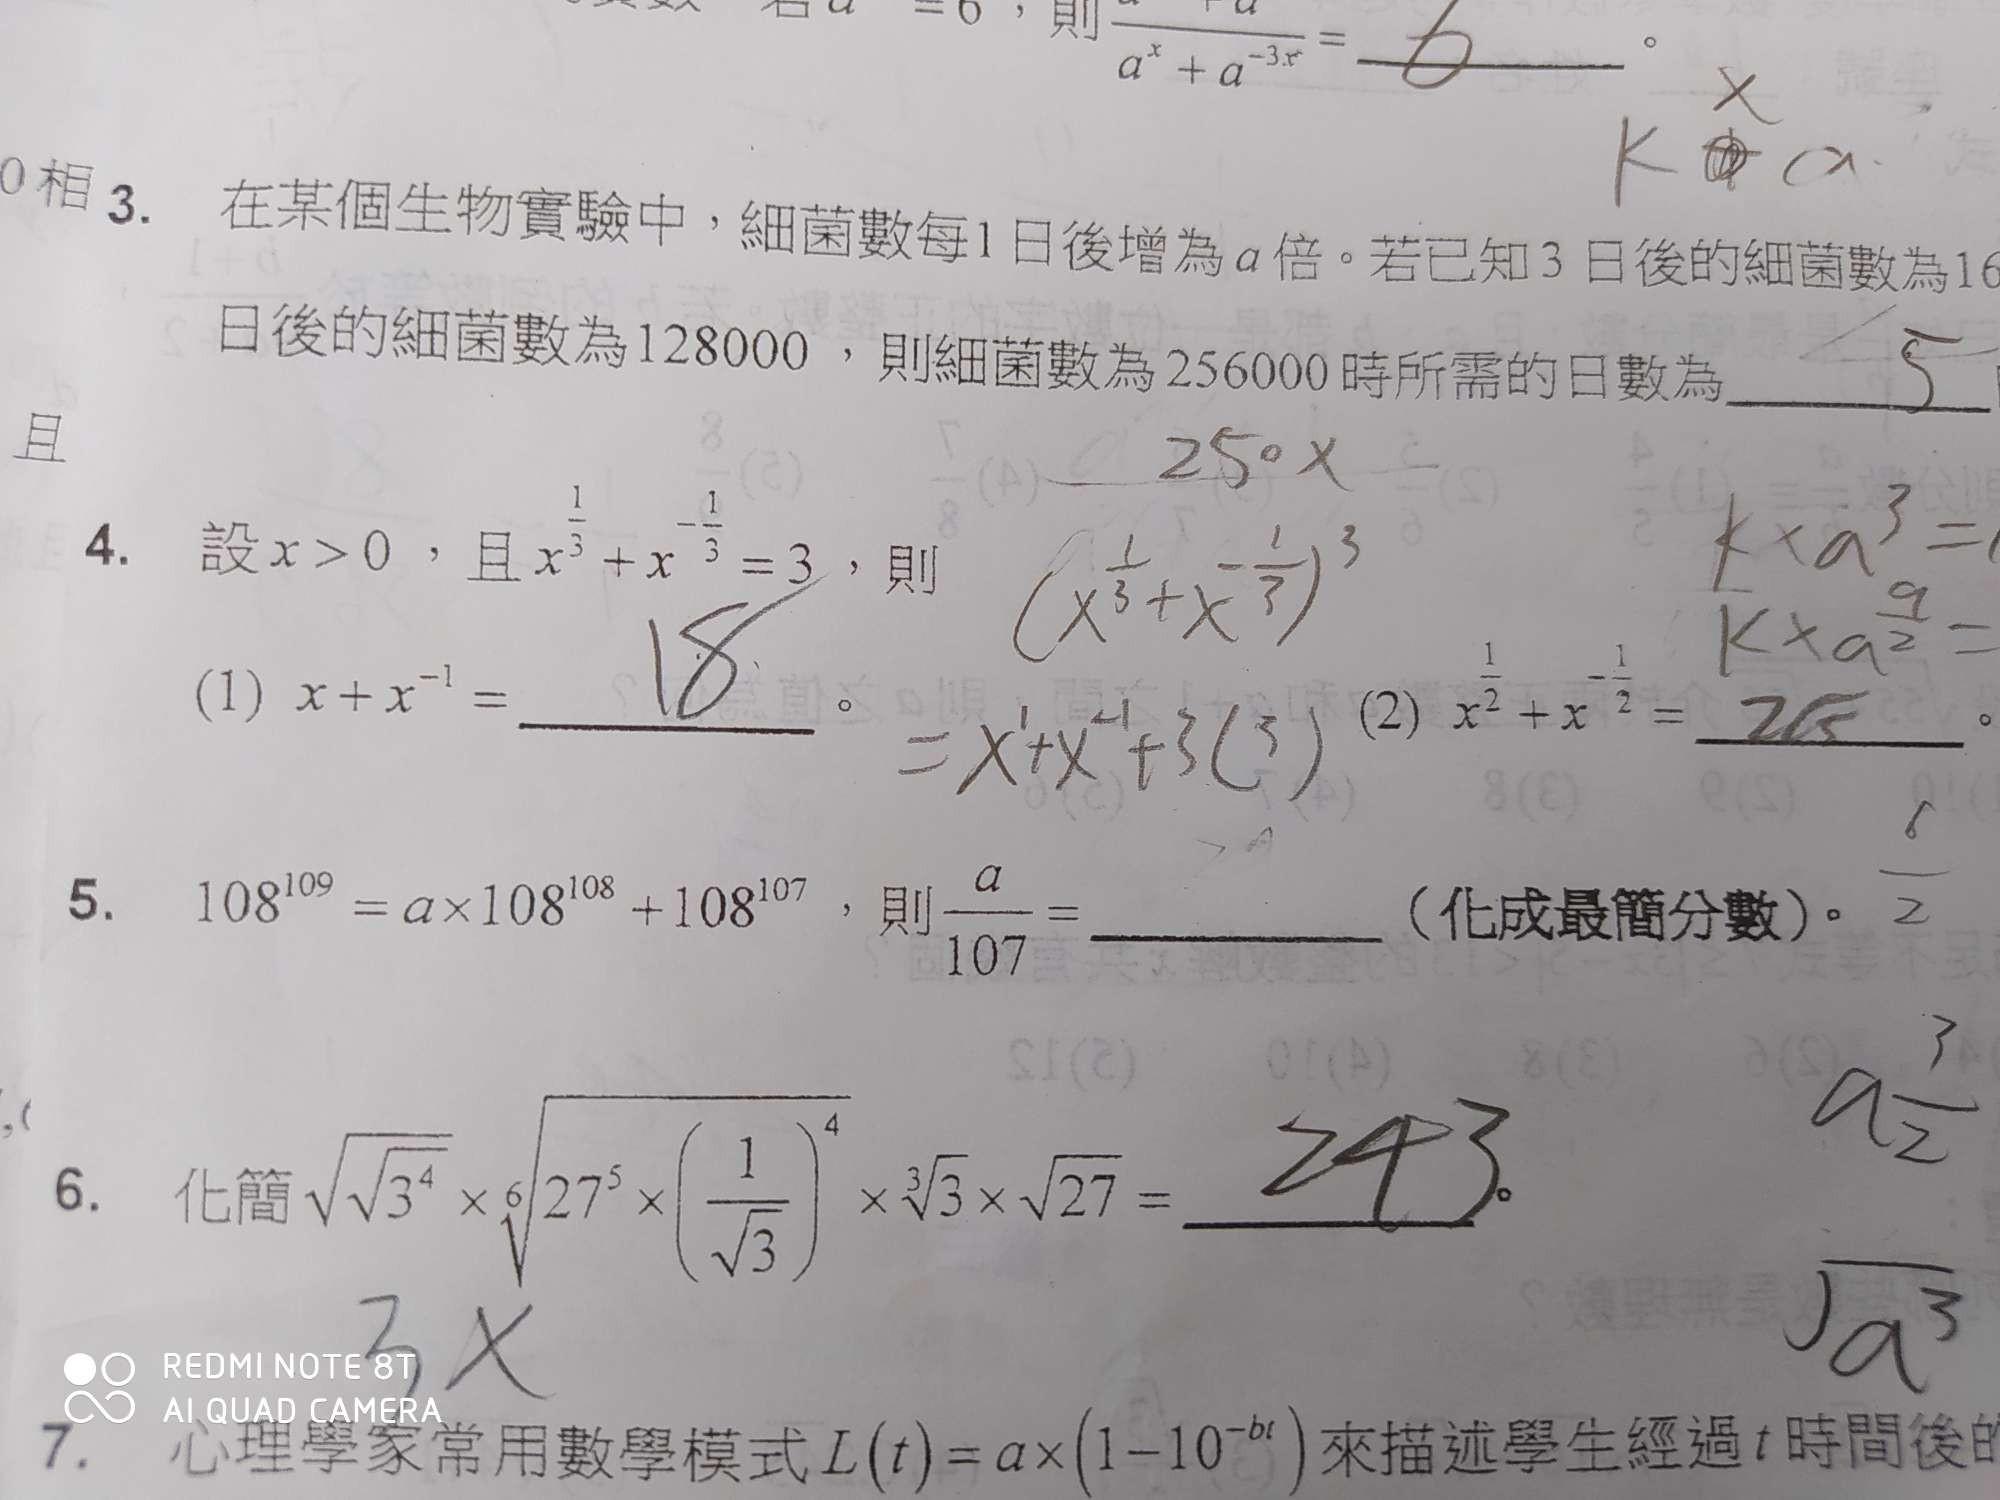 若a = 6，則 a^x + a^{-3x} = 6 。
x
K a
0相 3. 在某個生物實驗中，細菌數每1日後增為a倍。若已知3日後的細菌數為16
日後的細菌數為128000，則細菌數為256000時所需的日數為 5
且
250x
4. 設x>0，且x^{1/3}+x^{-1/3}=3，則
(x^{1/3}+x^{-1/3})^3
K×a^3=
K×a^{9/2}=
(1) x+x^{-1}= 18 。
=x^1+x^{-1}+3(3)
(2) x^{1/2}+x^{-1/2}= 2√5 。
5. 108^{109}=a×108^{108}+108^{107}，則a/107=（化成最簡分數）。
2
a^{3/2}
6. 化簡√√3^4×⁶√(27^5×(1/√3)^4)×³√3×√27= 243 。
√a^3
3 X
REDMI NOTE 8T
AI QUAD CAMERA
7. 心理學家常用數學模式L(t)=a×(1-10^{-bt})來描述學生經過t時間後的